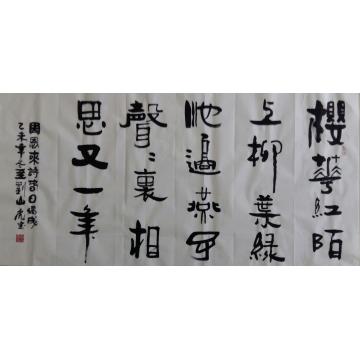 櫻華紅陌
上柳葉緑
池邊燕子
聲〻裏相
思又一年
周恩來詩春日偶成
乙未年冬至劉山虎書